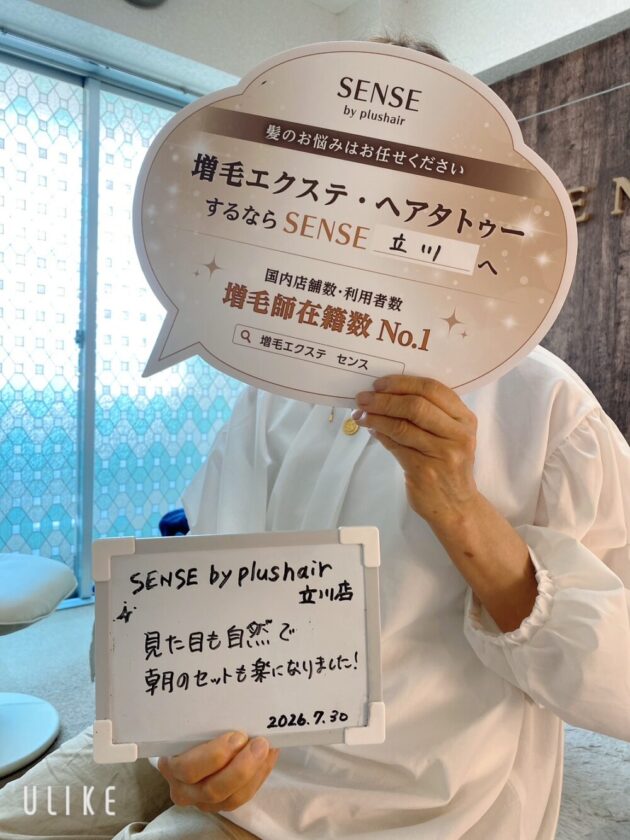 SENSE
by plushair
髪のお悩みはお任せください
増毛エクステ・ヘアタトゥー
するなら SENSE 立川 へ
国内店舗数・利用者数
増毛師在籍数 No.1
増毛エクステ センス
EN
SENSE by plushair
立川店
見た目も自然で
朝のセットも楽になりました!
2026.7.30
ULIKE